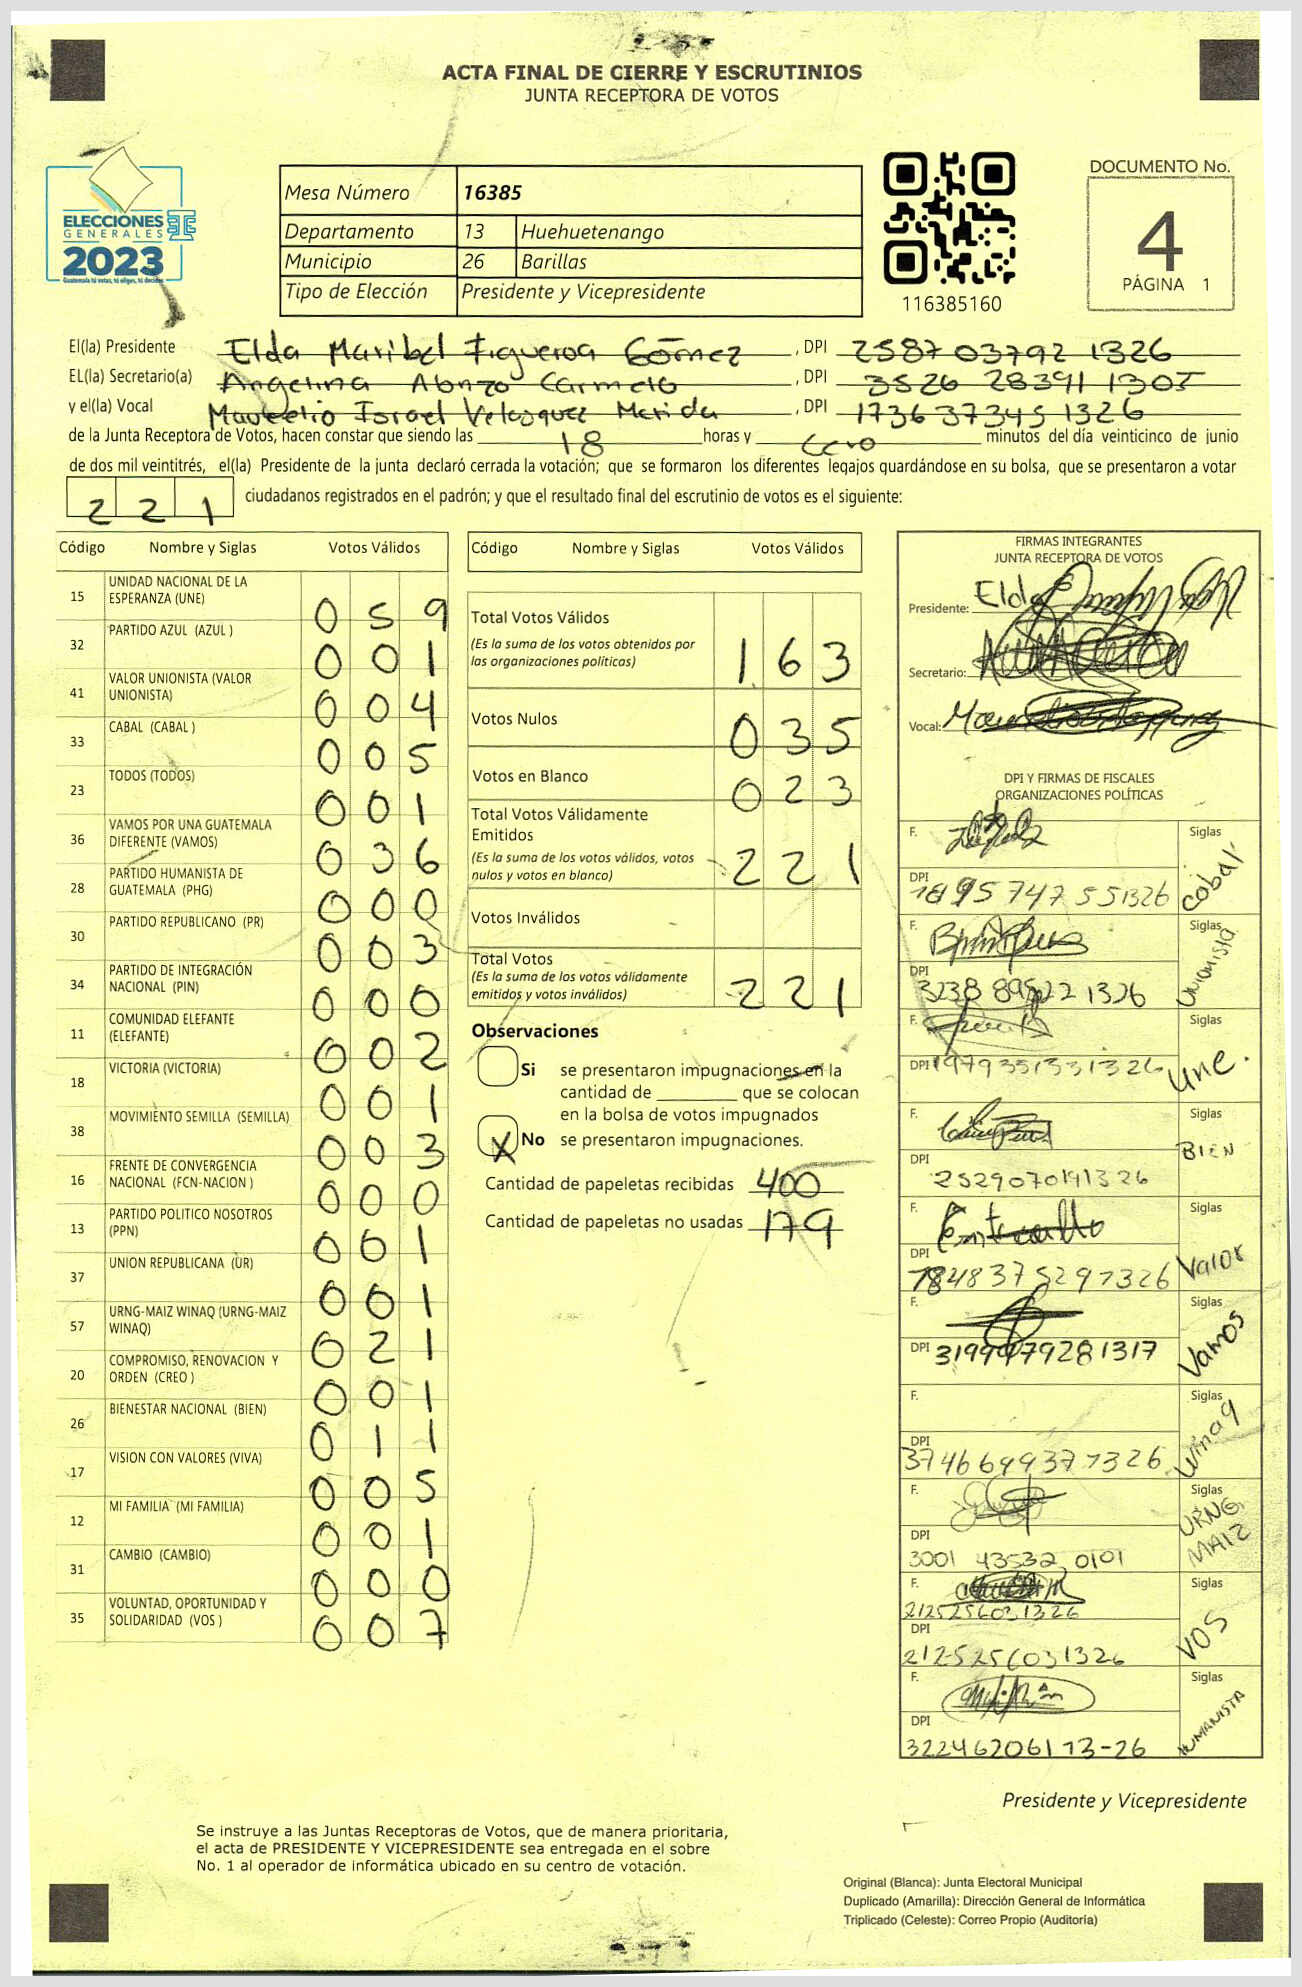 ACTA FINAL DE CIERRE Y ESCRUTINIOS
JUNTA RECEPTORA DE VOTOS
ELECCIONES
GENERALES
2023
Guatemala tú votas, tú eliges, tú decides
Mesa Número 16385
Departamento 13 Huehuetenango
Municipio 26 Barillas
Tipo de Elección Presidente y Vicepresidente
116385160
DOCUMENTO No.
4
PÁGINA 1
El(la) Presidente Elda Maribel Figueroa Gómez, DPI 2587 03792 1326
EL(la) Secretario(a) Angelina Alonzo Carmelo, DPI 3526 28391 1305
y el(la) Vocal Israel Velasquez Merida, DPI 1736373451326
de la Junta Receptora de Votos, hacen constar que siendo las 18 horas y cero minutos del día veinticinco de junio
de dos mil veintitrés, el(la) Presidente de la junta declaró cerrada la votación; que se formaron los diferentes legajos guardándose en su bolsa, que se presentaron a votar
221 ciudadanos registrados en el padrón; y que el resultado final del escrutinio de votos es el siguiente:
Código Nombre y Siglas Votos Válidos
15 UNIDAD NACIONAL DE LA ESPERANZA (UNE) 059
32 PARTIDO AZUL (AZUL ) 001
41 VALOR UNIONISTA (VALOR UNIONISTA) 004
33 CABAL (CABAL ) 005
23 TODOS (TODOS) 001
36 VAMOS POR UNA GUATEMALA DIFERENTE (VAMOS) 036
28 PARTIDO HUMANISTA DE GUATEMALA (PHG) 000
30 PARTIDO REPUBLICANO (PR) 003
34 PARTIDO DE INTEGRACIÓN NACIONAL (PIN) 000
11 COMUNIDAD ELEFANTE (ELEFANTE) 002
18 VICTORIA (VICTORIA) 001
38 MOVIMIENTO SEMILLA (SEMILLA) 003
16 FRENTE DE CONVERGENCIA NACIONAL (FCN-NACION ) 000
13 PARTIDO POLITICO NOSOTROS (PPN) 001
37 UNION REPUBLICANA (UR) 001
57 URNG-MAIZ WINAQ (URNG-MAIZ WINAQ) 021
20 COMPROMISO, RENOVACION Y ORDEN (CREO ) 001
26 BIENESTAR NACIONAL (BIEN) 011
17 VISION CON VALORES (VIVA) 005
12 MI FAMILIA (MI FAMILIA) 001
31 CAMBIO (CAMBIO) 000
35 VOLUNTAD, OPORTUNIDAD Y SOLIDARIDAD (VOS ) 007
Código Nombre y Siglas Votos Válidos
Total Votos Válidos 163
(Es la suma de los votos obtenidos por
las organizaciones políticas)
Votos Nulos 035
Votos en Blanco 023
Total Votos Válidamente
Emitidos 221
(Es la suma de los votos válidos, votos
nulos y votos en blanco)
Votos Inválidos
Total Votos 221
(Es la suma de los votos válidamente
emitidos y votos inválidos)
Observaciones
Si se presentaron impugnaciones en la
cantidad de ________ que se colocan
en la bolsa de votos impugnados
X No se presentaron impugnaciones.
Cantidad de papeletas recibidas 400
Cantidad de papeletas no usadas 179
FIRMAS INTEGRANTES
JUNTA RECEPTORA DE VOTOS
Presidente: Elda
Secretario:
Vocal:
DPI Y FIRMAS DE FISCALES
ORGANIZACIONES POLÍTICAS
F. Siglas cabal
DPI 1895 747 551326
F. Siglas Unionista
DPI
F. Siglas Une.
DPI 1979351331326
F. Siglas BIEN
DPI 2529070191326
F. Siglas Valor
DPI 1848375291326
F. Siglas Vamos
DPI 3199979281317
F. Siglas Winaq
DPI 3746699371326
F. Siglas URNG MAIZ
DPI 3001 43532 0101
F. Siglas VOS
2125256031326
DPI 2125256031326
F. Siglas HUMANISTA
DPI 3224620611 3-26
Presidente y Vicepresidente
Se instruye a las Juntas Receptoras de Votos, que de manera prioritaria,
el acta de PRESIDENTE Y VICEPRESIDENTE sea entregada en el sobre
No. 1 al operador de informática ubicado en su centro de votación.
Original (Blanca): Junta Electoral Municipal
Duplicado (Amarilla): Dirección General de Informática
Triplicado (Celeste): Correo Propio (Auditoría)